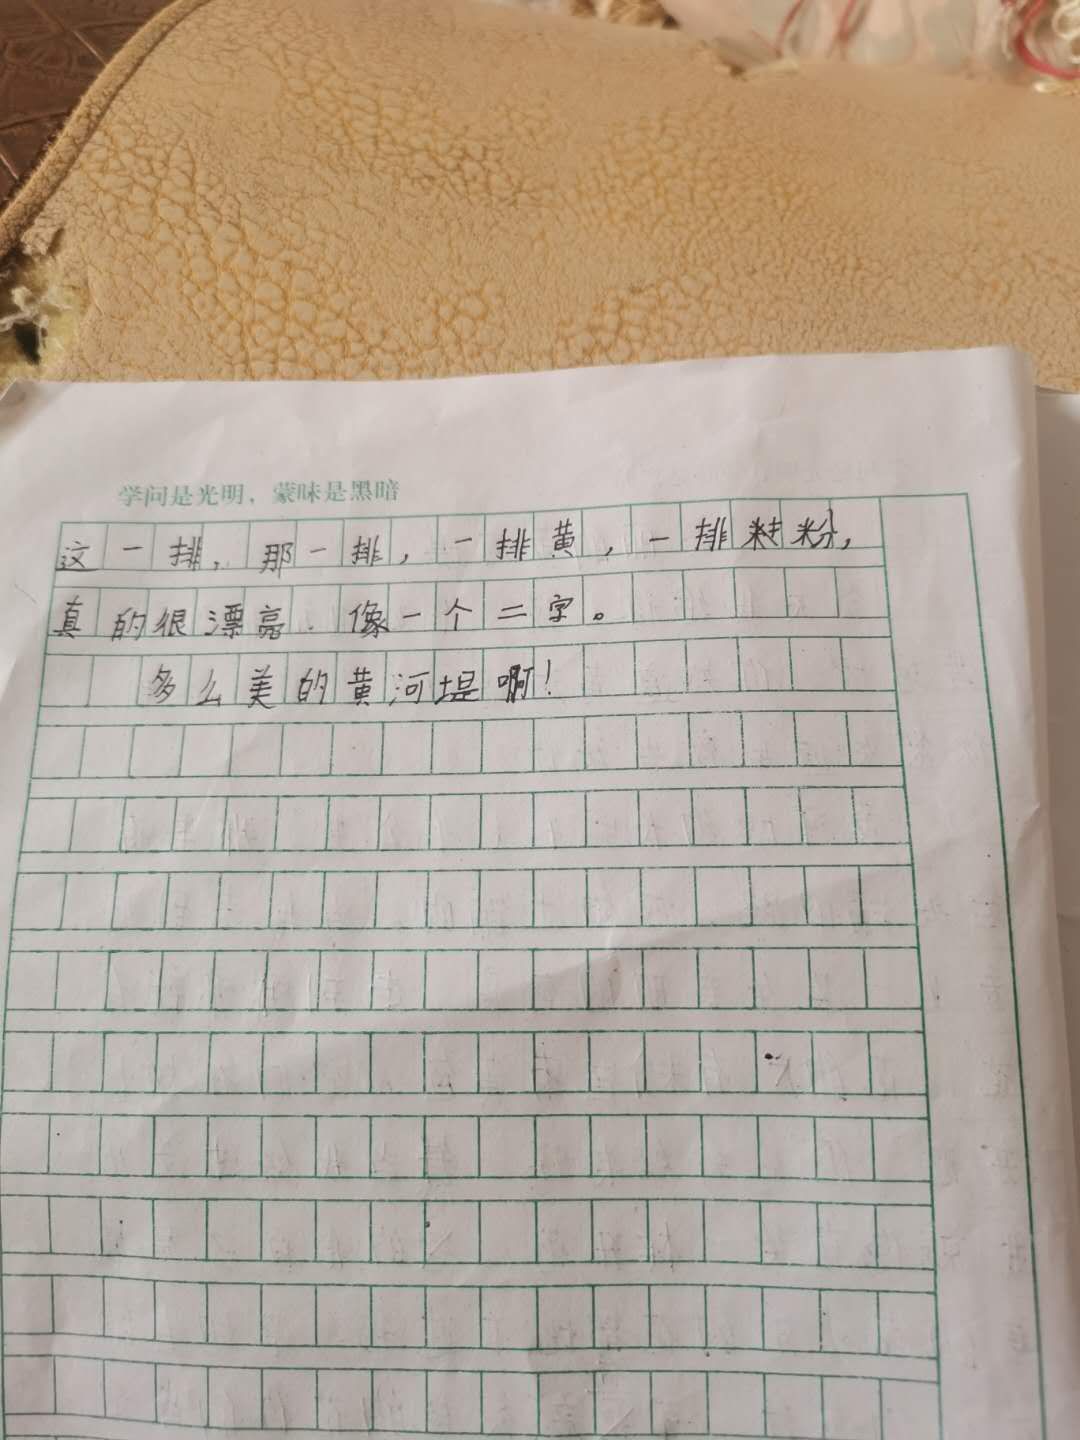 学问是光明，蒙昧是黑暗
这一排，那一排，一排黄，一排粉，
真的很漂亮．像一个二字。
多么美的黄河堤啊！